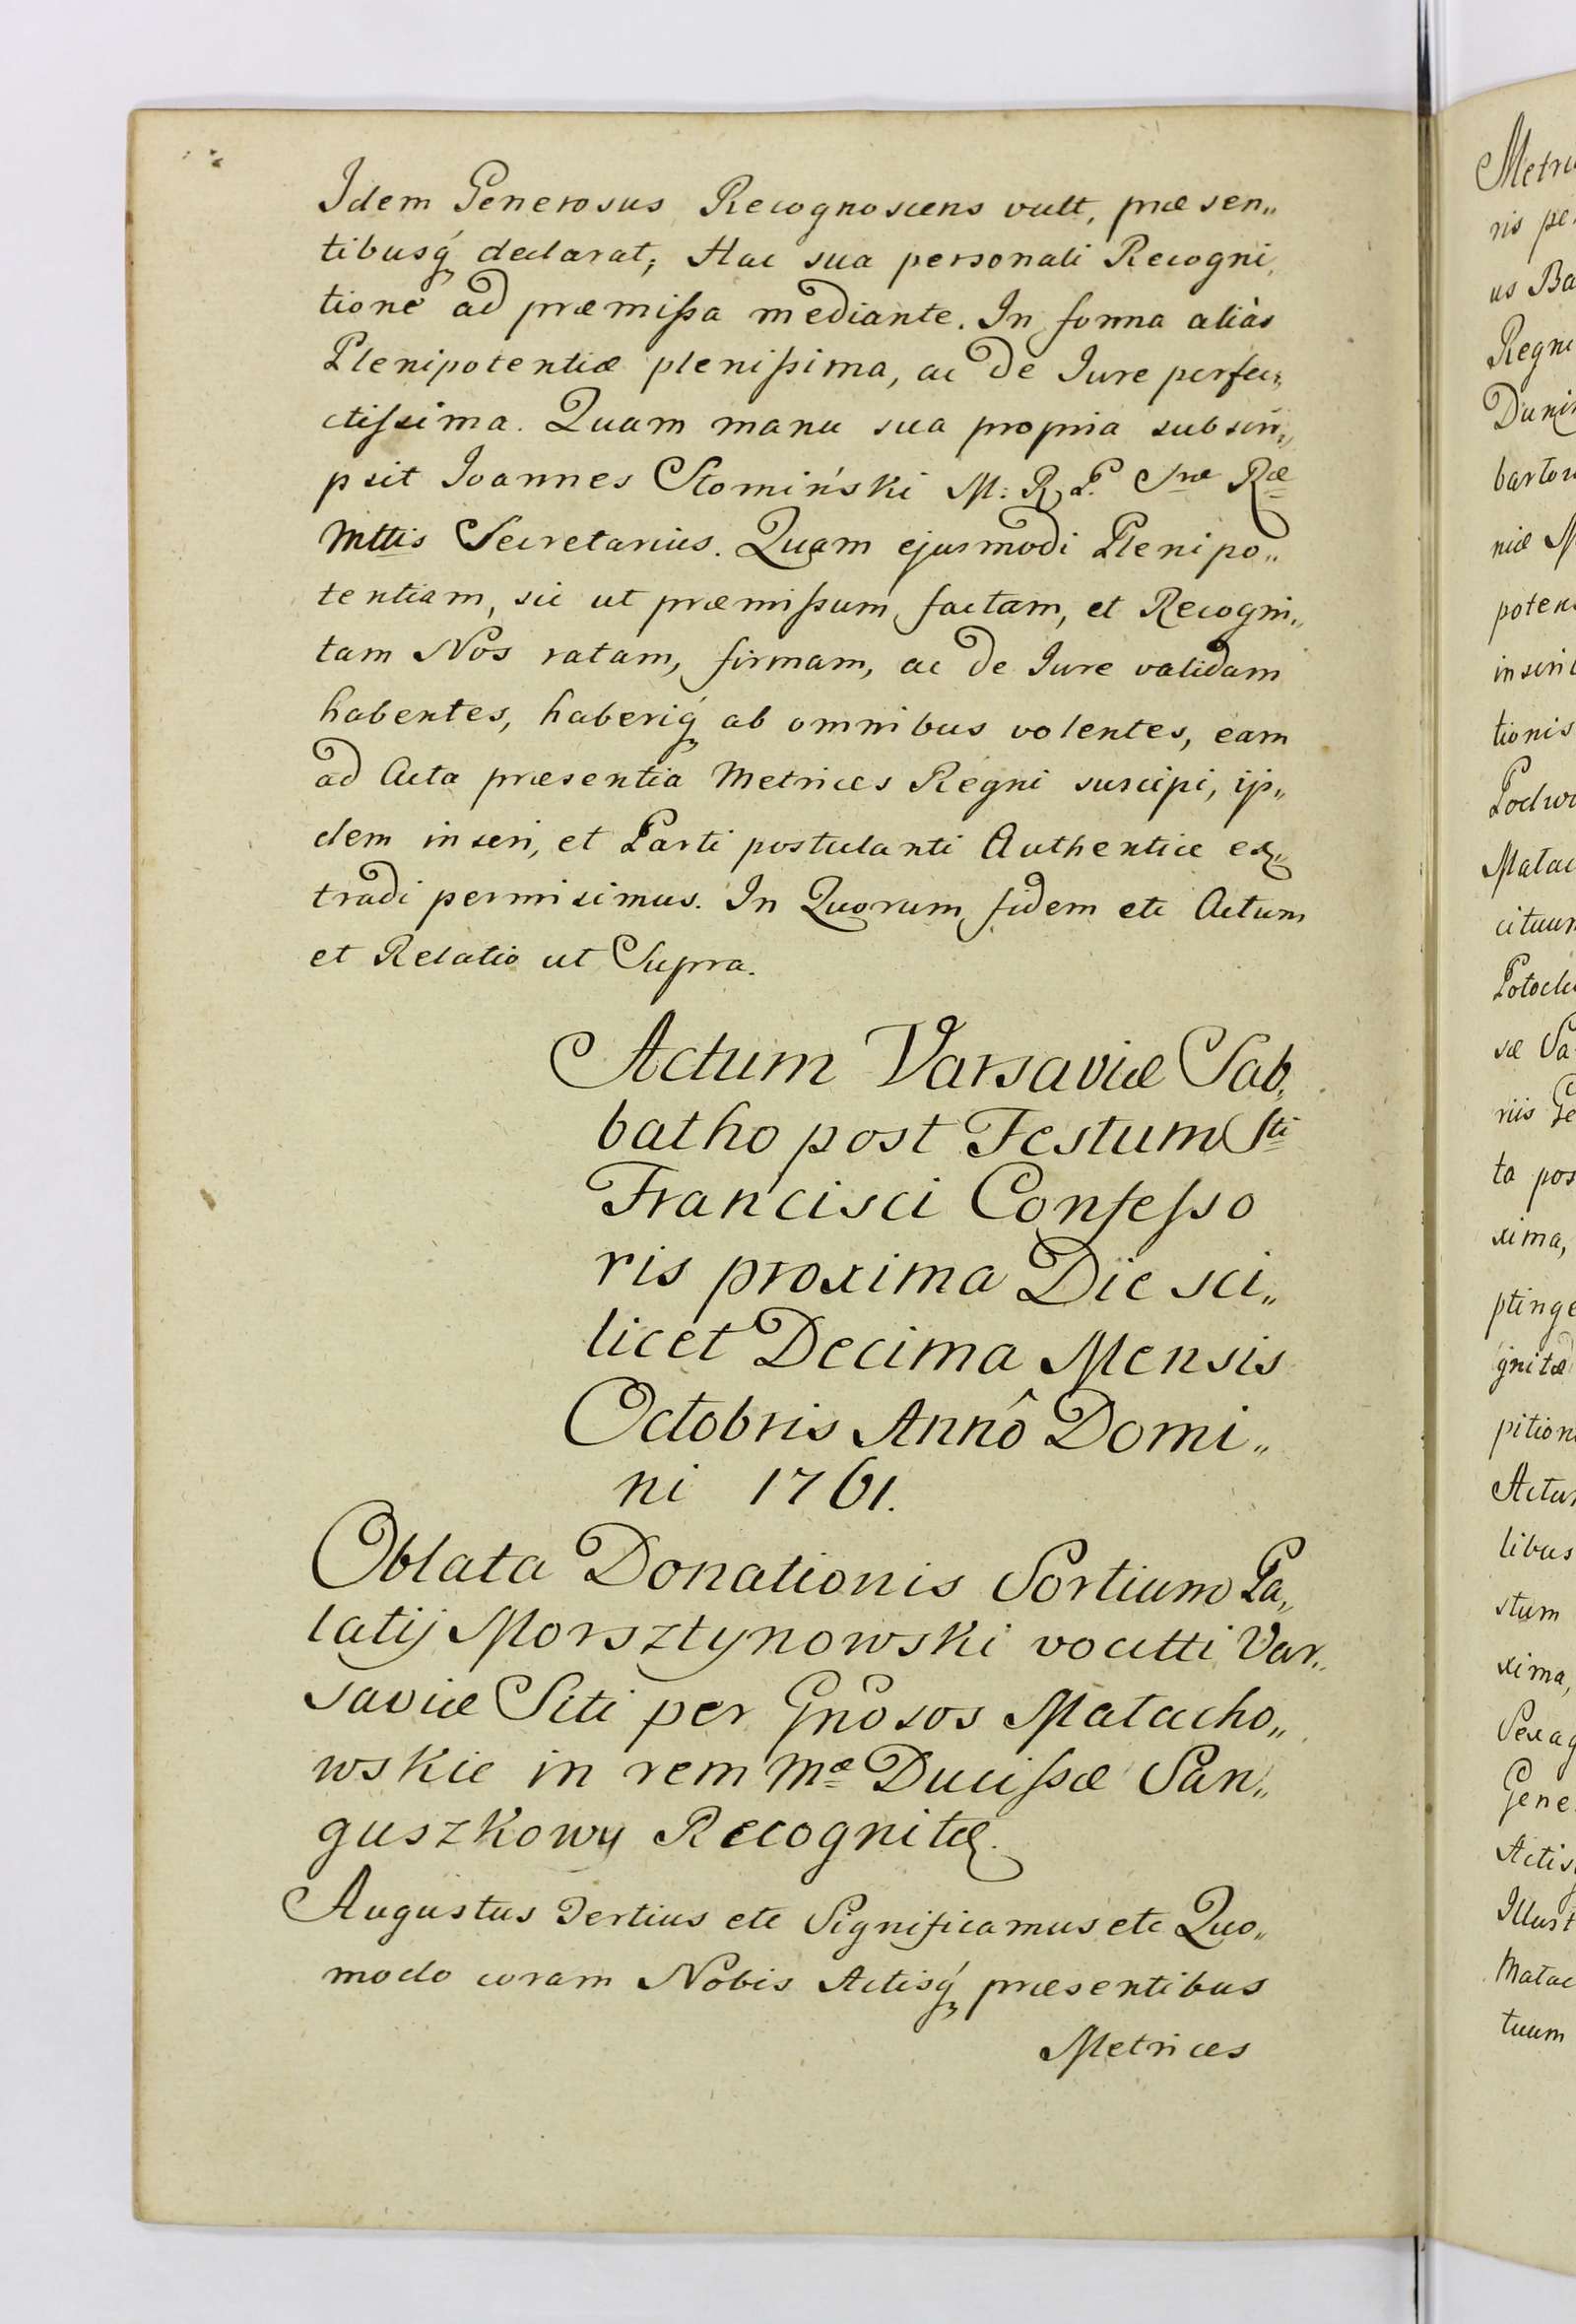 Idem Generosus Recognoscens vult, præsen„
tibusq́ declarat; Hac sua personali Recogni„
tione ad præmißa mediante. In forma aliàs
Plenipotentiæ plenißima, ac de Iure perfe„
ctißima. Quam manu sua propria subscri„
psit Ioannes Słomiński M: R. P. Sræ Ræ
Mttis Secretarius. Quam ejusmodi Plenipo„
tentiam, sic ut præmißum, factam, et Recogni„
tam Nos ratam, firmam, ac de Iure validam
habentes, haberiq́ ab omnibus volentes, eam
ad Acta præsentia Metrices Regni suscipi, ijs„
dem inseri, et Parti postulanti Authentice ex„
tradi permisimus. In Quorum fidem etc Actum
et Relatio ut Supra.
Actum Varsaviæ Sab„
batho post Festum Sti
Francisci Confesso
ris proxima Die sci„
licet Decima Mensis
Octobris Annô Domi„
ni 1761.
Oblata Donationis Sortium Pa„
latij Morsztynowski vocitti Var„
saviæ Siti per Gnosos Małacho„
wskie in rem Mæ Ducißæ San„
guszkowy Recognitæ.
Augustus Tertius etc Significamus etc Quo„
modo coram Nobis Actisq́ præsentibus
Metrices
Metri
ris pe
us Ba
Regni
Dunin
barto
niæ M
poten
inscri
tionis
Podwo
Małac
cituum
Potock
sæ Sa
riis Ge
ta pos
xima,
ptinge
gnitæ
pition
Actu
libus
stum
xima,
Sexag
Gene
Actis
Illust
Małac
tuum